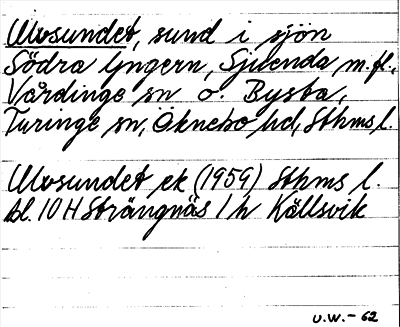 Ulvsundet, sund i sjön
Södra Yngern, Sjuenda m.fl.,
Vårdinge sn o. Bysta,
Turinge sn, Öknebo hd, Sthms l.
Ulvsundet ek (1959) Sthms l.
bl. 10 H Strängnäs 1 h Källsvik
U.W.-62